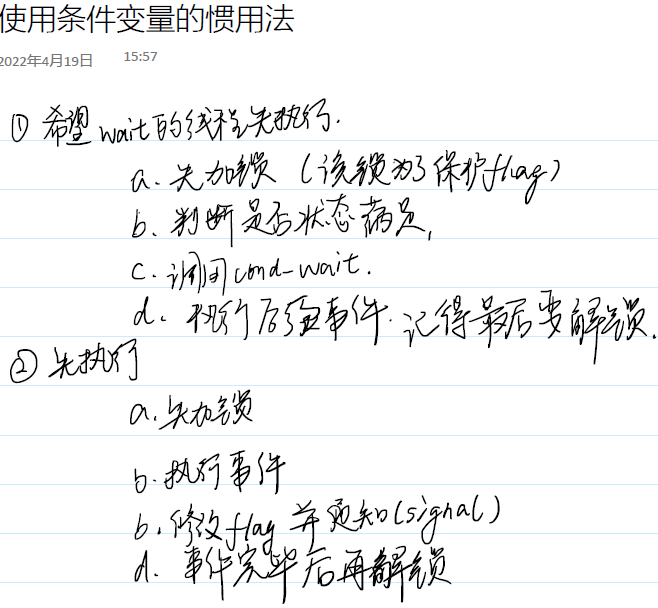 使用条件变量的惯用法
2022年4月19日 15:57
① 希望wait的线程先执行.
a. 先加锁 (该锁为了保护flag)
b. 判断是否状态满足,
c. 调用cond_wait.
d. 执行后续事件. 记得最后要解锁.
② 先执行
a. 先加锁
b. 执行事件
b. 修改flag 并通知(signal)
d. 事件完毕后再解锁